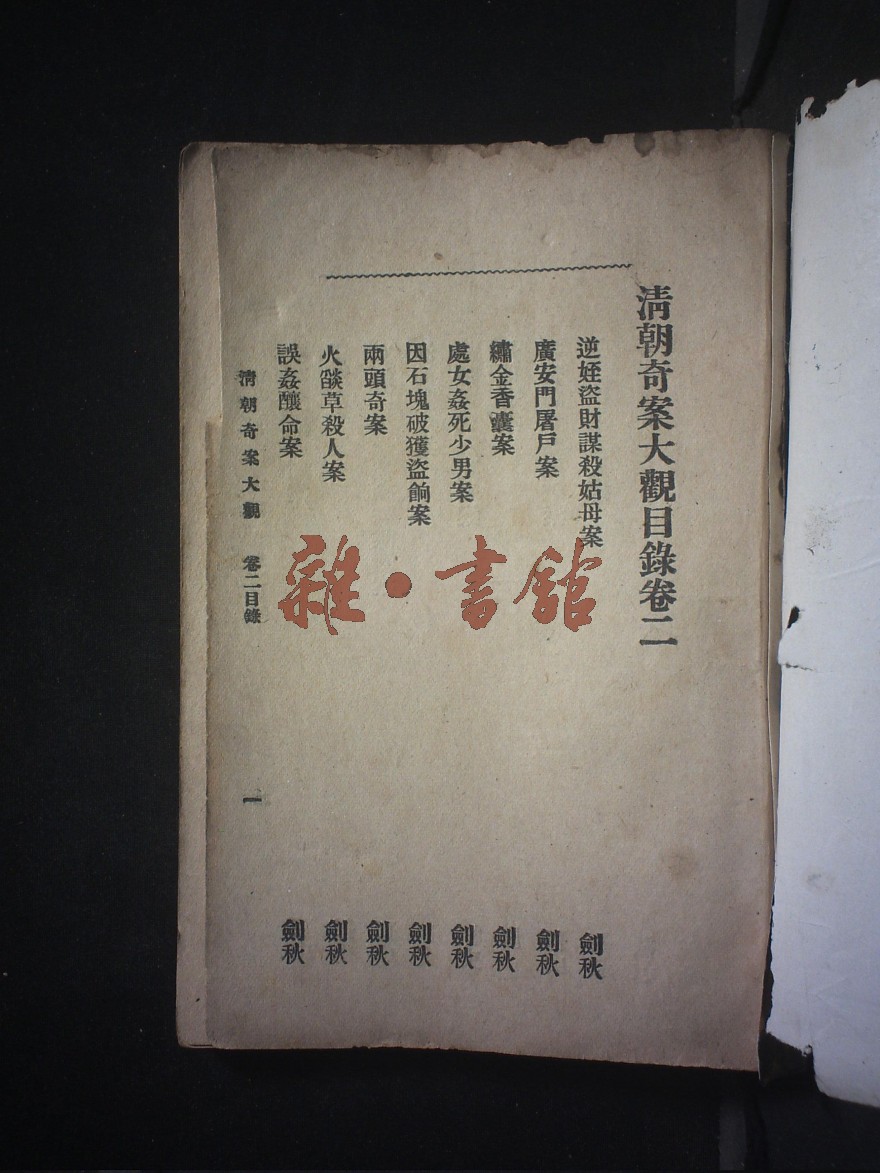 清朝奇案大觀目錄卷二
逆姪盜財謀殺姑母案 劍秋
廣安門屠戶案 劍秋
繡金香囊案 劍秋
處女姦死少男案 劍秋
因石塊破獲盜餉案 劍秋
兩頭奇案 劍秋
火燄草殺人案 劍秋
誤姦釀命案 劍秋
清朝奇案大觀 卷二目錄 一
雜·書館